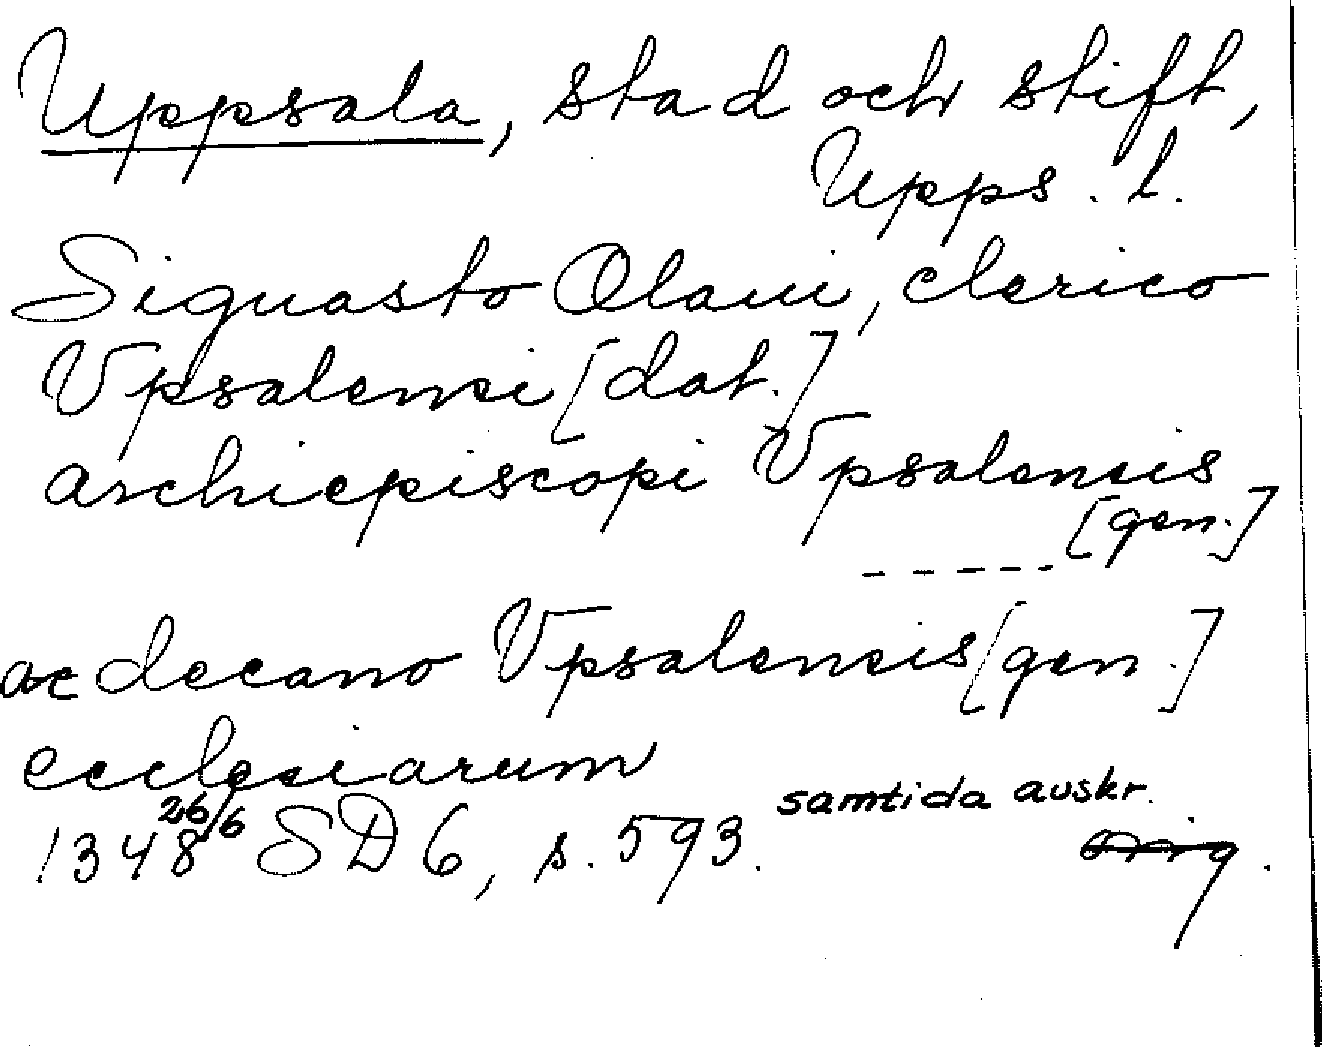 Uppsala, stad och stift,
Upps. l.
Siguasto Olaui, clerico
Vpsalensi [dat.]
archiepiscopi Vpsalensis
[gen.]
- - - - -
ac decano Vpsalensis [gen.]
ecclesiarum
1348 26/6 SD 6, s. 593. samtida avskr.
orig.